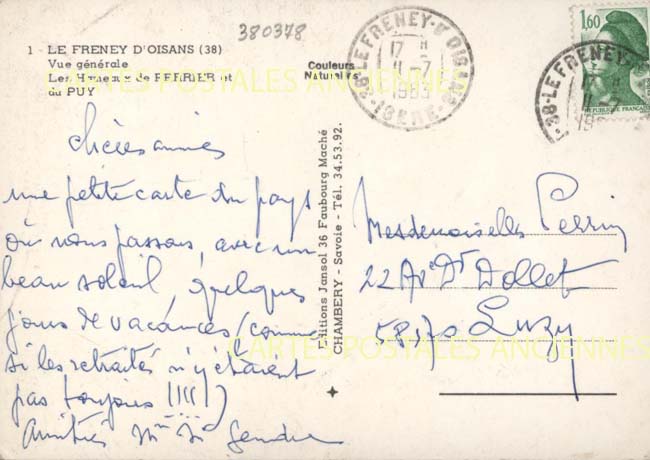 380378
1 - LE FRENEY D'OISANS (38)
Vue générale
Les Hameaux de PERRIER et
du PUY
Couleurs
Naturelles
38-LE FRENEY-D'OISANS
17 H
11-7
1983
ISERE
1,60
REPUBLIQUE FRANÇAISE
38-LE FRENEY-
chères amies
une petite carte du pays
où nous passons, avec un
beau soleil, quelques
jours de vacances (comme
si les retraités n'y étaient
pas toujours !!!! )
Amitiés
Gendre
Editions Jansol 36 Faubourg Maché
CHAMBERY - Savoie - Tél. 34.53.92.
Mesdemoiselles Perrin
22 Av. Dr Dollet
58170 Luzy
CARTES POSTALES ANCIENNES
CARTES POSTALES ANCIENNES